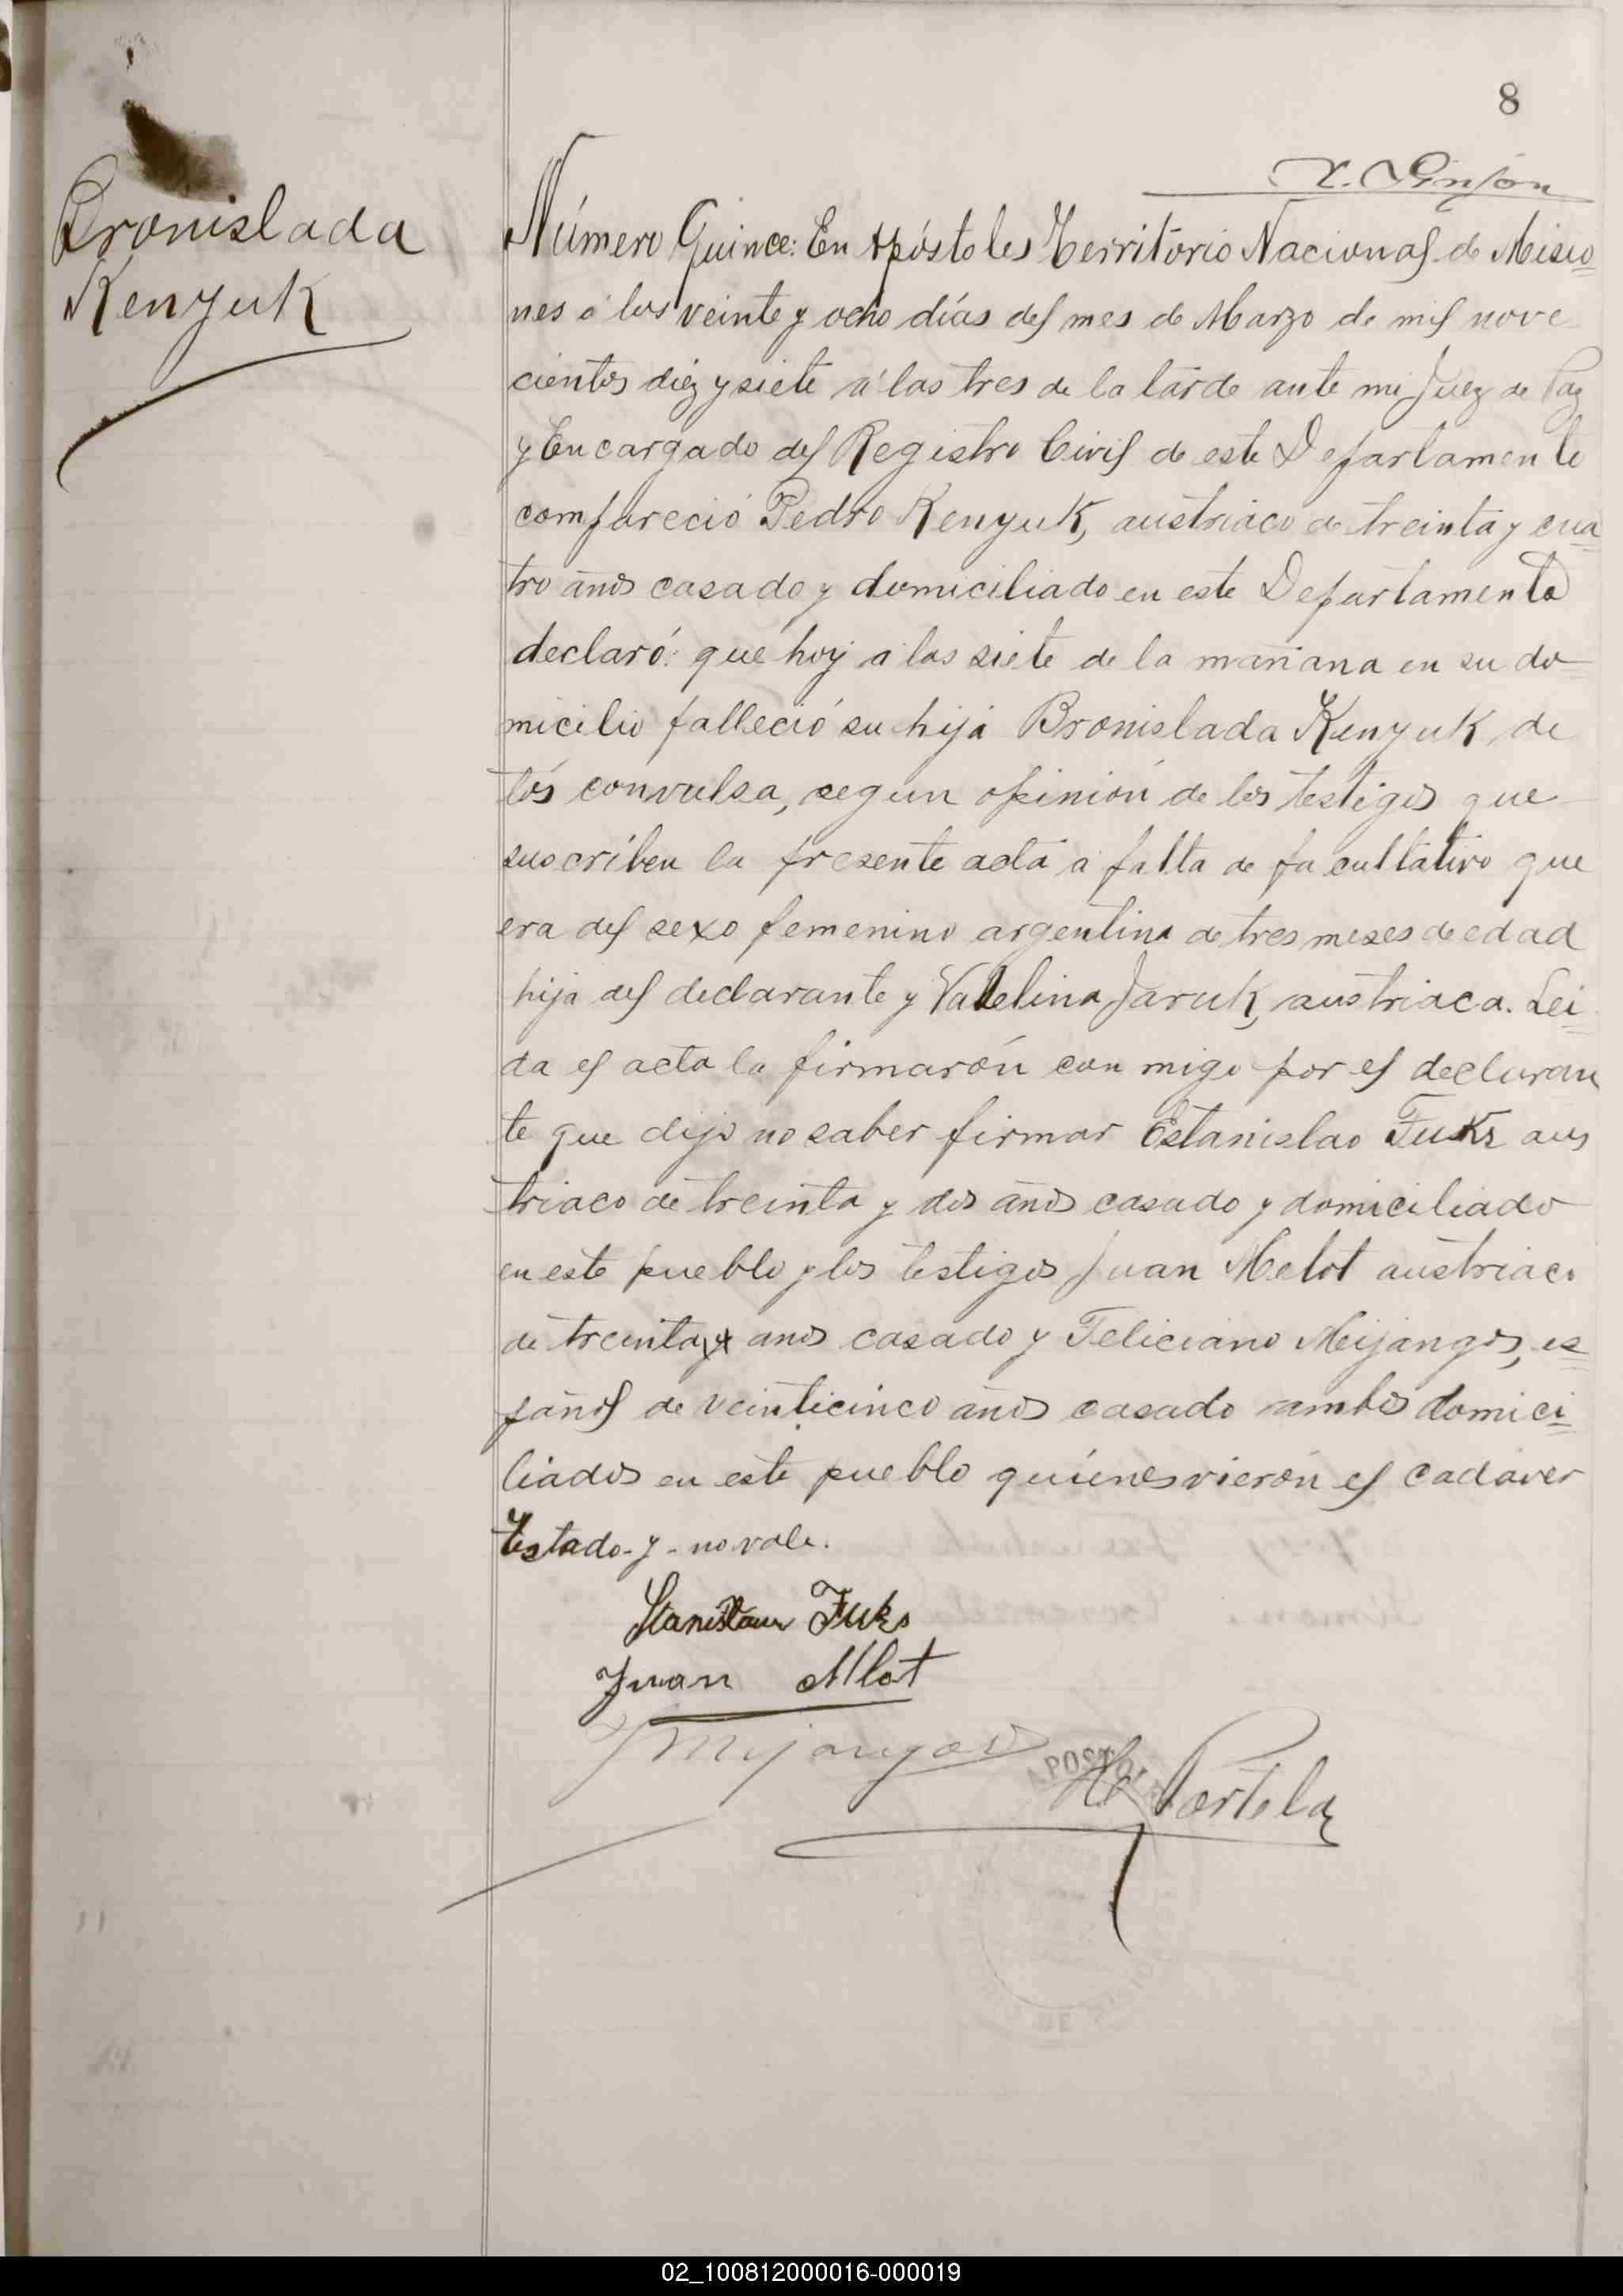 8
Bronislada
Kenyuk
Número Quince: En Apóstoles Territorio Nacional de Misio
nes á los veinte y ocho días del mes de Marzo de mil nove
cientos diez y siete á las tres de la tarde ante mi Juez de Paz
y Encargado del Registro Civil de este Departamento
compareció Pedro Kenyuk, austriaco de treinta y cua
tro años casado y domiciliado en este Departamento
declaró: que hoy á las siete de la mañana en su do
micilio falleció su hija Bronislada Kenyuk, de
tós convulsa, segun opinión de los testigos que
suscriben la presente acta á falta de facultativo que
era del sexo femenino argentina de tres meses de edad
hija del declarante y Vatelina Jaruk, austriaca. Lei
da el acta la firmarón con migo por el declaran
te que dijo no saber firmar Estanislao Fuks aus
triaco de treinta y dos años casado y domiciliado
en este pueblo y los testigos Juan Melot austriaco
de treinta y años casado y Feliciano Meijangos, es
pañol de veinticinco años casado ambos domici
liados en este pueblo quiénes vierón el cadáver
Testado - y - no vale.
Stanislaw Fuks
Juan Mlot
F Mijangos
Portela
02_100812000016-000019